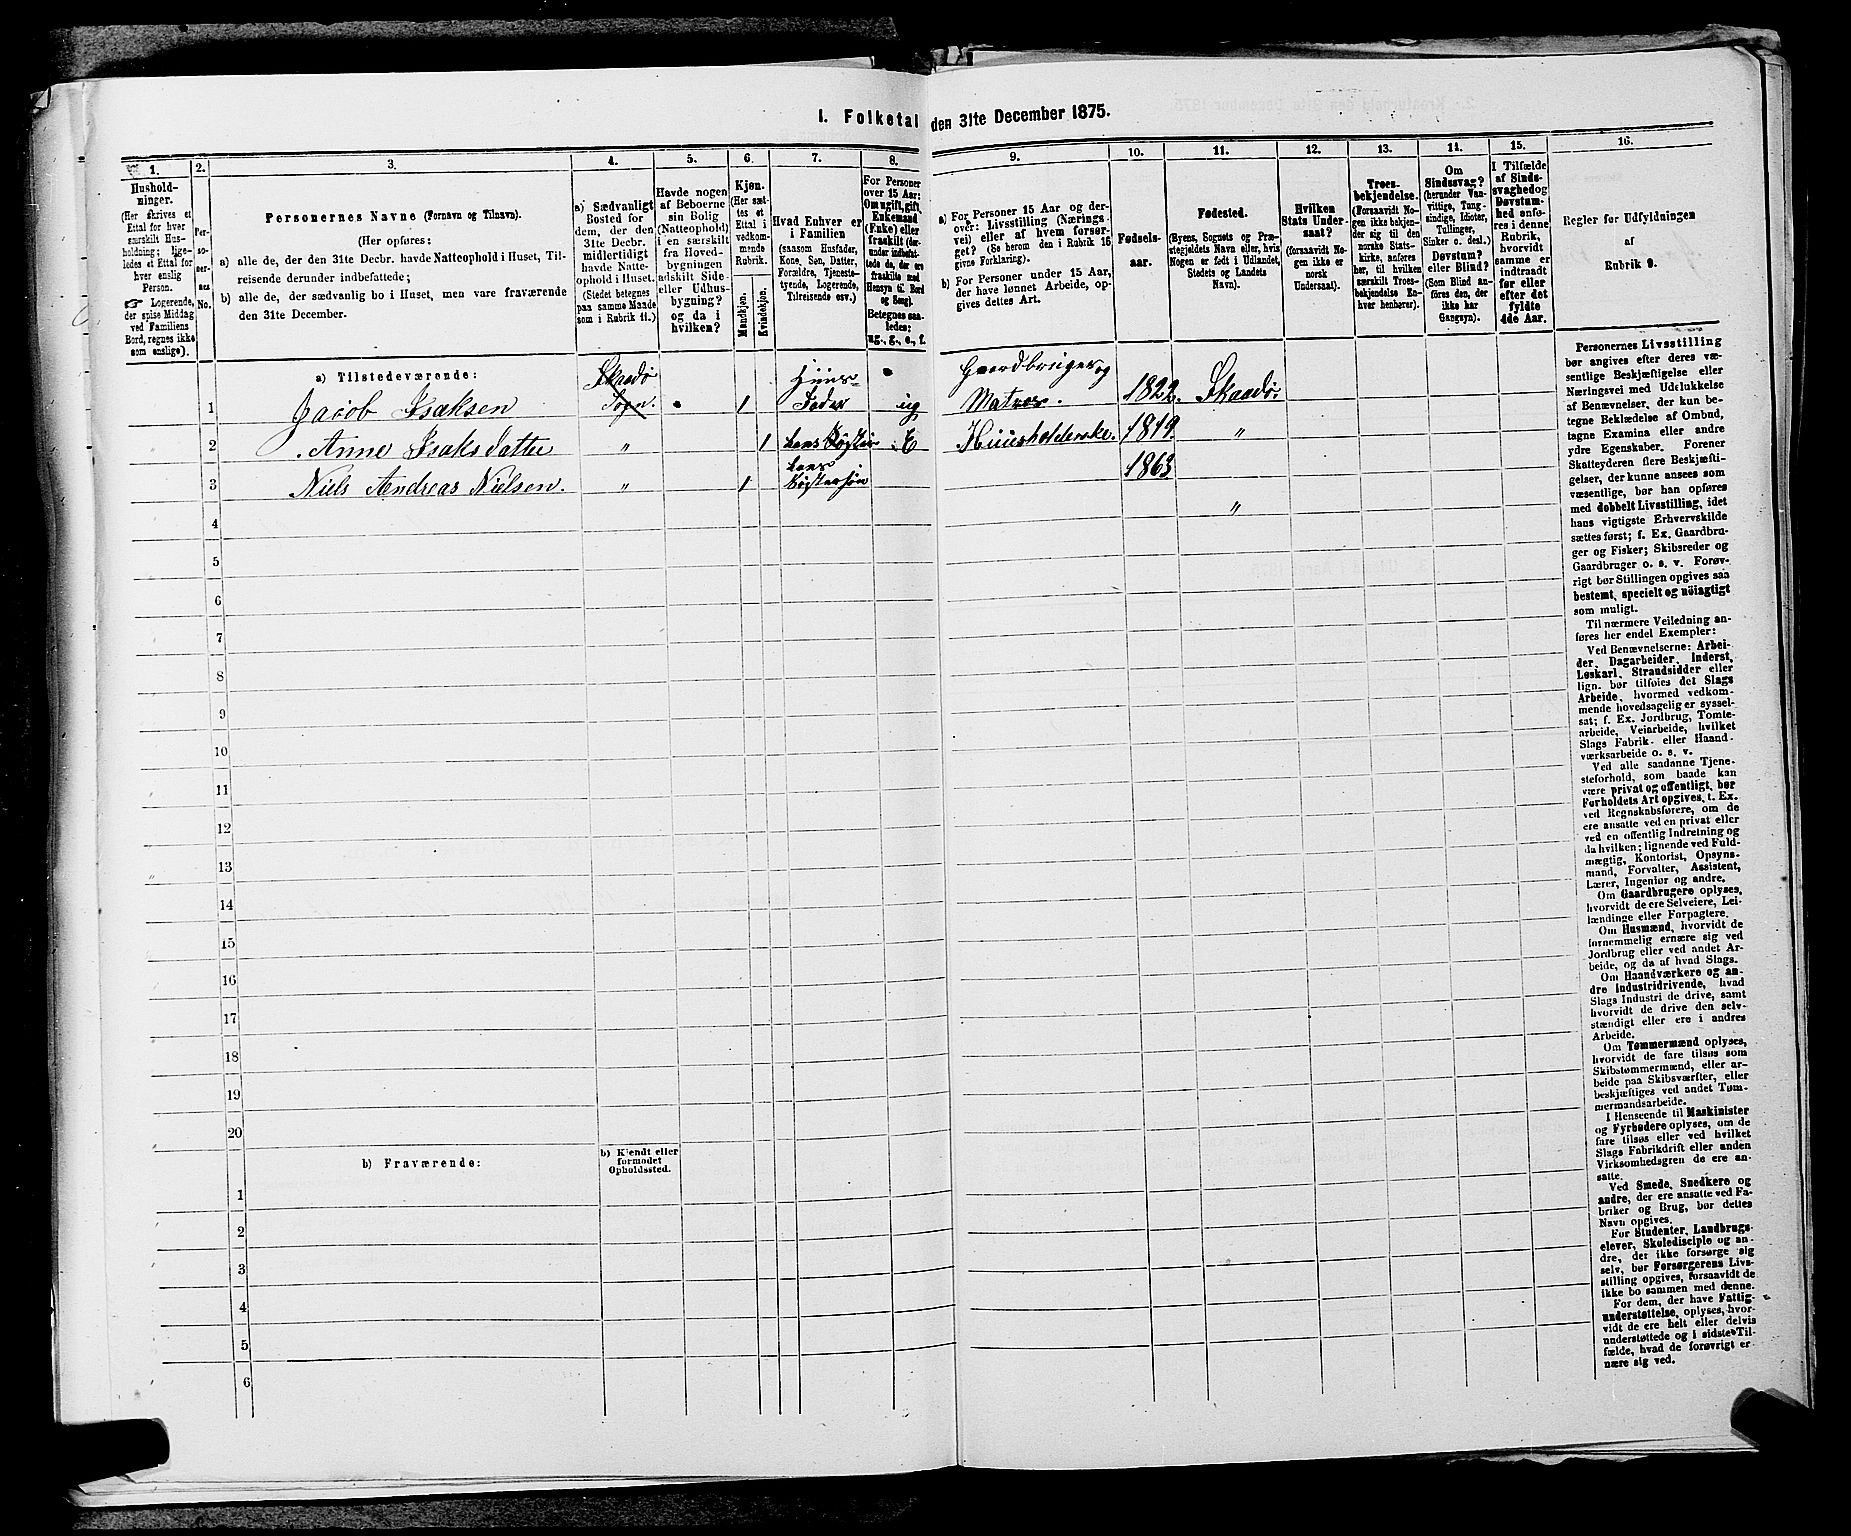 I. Folketal den 31te December 1875.
1.
2.
3.
4.
5.
6.
7.
8.
9.
10.
11.
12.
13.
14.
15.
16.
Hushold-
ninger.
(Her skrives et
Ettal for hver
særskilt Hus-
holdning; lige-
ledes et Ettal for
hver enslig
Person.
☞ Logerende,
der spise Middag
ved Familiens
Bord, regnes ikke
som enslige).
Per-
so-
ner-
nes
No.
Personernes Navne (Fornavn og Tilnavn).
(Her opføres:
a) alle de, der den 31te Decbr. havde Natteophold i Huset, Til-
reisende derunder indbefattede;
b) alle de, der sædvanlig bo i Huset, men vare fraværende
den 31te December.
a) Sædvanligt
Bosted for
dem, der den
31te Decbr.
midlertidigt
havde Natte-
ophold i Huset.
(Stedet betegnes
paa samme Maade
som i Rubrik 11.)
Havde nogen
af Beboerne
sin Bolig
(Natteophold)
i en særskilt
fra Hoved-
bygningen
adskilt Side-
eller Udhus-
bygning?
og da i
hvilken?
Kjøn.
(Her sæt-
tes et
Ettal i
vedkom-
mende
Rubrik.
Mandkjøn.
Kvindekjøn.
Hvad Enhver er
i Familien
(saasom Husfader,
Kone, Søn, Datter,
Forældre, Tjeneste-
tyende, Logerende,
Tilreisende osv.)
For Personer
over 15 Aar:
Om ugift, gift,
Enkemand
(Enke) eller
fraskilt (der-
under indbefat-
tede de, der ere
fraskilte med
Hensyn til Bord
og Seng).
Betegnes saa-
ledes:
ug., g., e., f.
a) For Personer 15 Aar og der-
over: Livsstilling (Nærings-
vei) eller af hvem forsør-
get? (Se herom den i Rubrik 16
givne Forklaring).
b) For Personer under 15 Aar,
der have lønnet Arbeide, op-
gives dettes Art.
Fødsels-
aar.
Fødested.
(Byens, Sognets og Præ-
stegjeldets Navn eller, hvis
Nogen er født i Udlandet,
Stedets og Landets
Navn).
Hvilken
Stats Under-
saat?
(foraavidt No-
gen ikke er
norsk
Undersaat).
Troes-
bekjendelse.
(Forsaavidt No-
gen ikke bekjen-
der sig til den
norske Stats-
kirke, anføres
her, til hvilken
særskilt Troes-
bekjendelse En-
hver henhører).
Om
Sindssvag?
(herunder Van-
vittige, Tung-
sindige, Idioter,
Tullinger,
Sinker o. desl.)
Døvstum?
eller Blind?
(Som Blind an-
føres den, der
ikke har
Gangsyn).
I Tilfælde
af Sinds-
svaghed og
Døvstum-
hed anfø-
res i denne
Rubrik,
hvorvidt
samme er
indtraadt
før eller
efter det
fyldte
4de Aar.
Regler for Udfyldningen
af
Rubrik 9.
a) Tilstedeværende:
1 Jacob Isaksen Skaadø Sogn. 1 Huus-Fader ug Gaardbruger og Matros. 1822. Skaadø.
2 Anne Isaksdatter " 1 hans Søster E Huusholderske. 1819. "
3 Niels Andreas Nielsen. " 1 hans Søstersøn 1863. "
4
5
6
7
8
9
10
11
12
13
14
15
16
17
18
19
20
b) Fraværende:
b) Kjendt eller
formodet
Opholdssted.
1
2
3
4
5
6
Personernes Livsstilling
bør angives efter deres væ-
sentlige Beskjæftigelse eller
Næringsvei med Udelukkelse
af Benævnelser, der kun be-
tegne Beklædelse af Ombud,
tagne Examina eller andre
ydre Egenskaber. Forener
Skatteyderen flere Beskjæfti-
gelser, der kunne ansees som
væsentlige, bør han opføres
med dobbelt Livsstilling, idet
hans vigtigste Erhvervskilde
sættes først; f. Ex. Gaardbru-
ger og Fisker; Skibsreder og
Gaardbruger o. s. v. Forøv-
rigt bør Stillingen opgives saa
bestemt, specielt og nöiagtigt
som muligt.
Til nærmere Veiledning an-
føres her endel Exempler:
Ved Benævnelserne: Arbei-
der, Dagarbeider, Inderst,
Løskarl, Strandsidder eller
lign. bør tilføies det Slags
Arbeide, hvormed vedkom-
mende hovedsagelig er syssel-
sat; f. Ex. Jordbrug, Tomte-
arbeide, Veiarbeide, hvilket
Slags Fabrik- eller Haand-
værksarbeide o. s. v.
Ved alle saadanne Tjene-
steforhold, som baade kan
være privat og offentligt, bør
Forholdets Art opgives, t. Ex.
ved Regnskabsførere, om de
ere ansatte ved en privat eller
ved en offentlig Indretning og
da hvilken; lignende ved Fuld-
mægtig, Kontorist, Opsyns-
mand, Forvalter, Assistent,
Lærer, Ingeniør og andre.
Om Gaardbrugere oplyses,
hvorvidt de ere Selveiere, Lei-
lændinge eller Forpagtere.
Om Husmænd, hvorvidt de
fornemmelig ernære sig ved
Jordbrug eller ved andet Ar-
beide, og da af hvad Slags.
Om Haandværkere og an-
dre Industridrivende, hvad
Slags Industri de drive, samt
hvorvidt de drive den selv-
stændigt eller ere i andres
Arbeide.
Om Tømmermænd oplyses,
hvorvidt de fare tilsøs som
Skibstømmermænd, eller ar-
beide paa Skibsværfter, eller
beskjæftiges ved andet Tøm-
mermandsarbeide.
I Henseende til Maskinister
og Fyrbødere oplyses, om de
fare tilsøs eller ved hvilket
Slags Fabrikdrift eller anden
Virksomhedsgren de ere an-
satte.
Ved Smede, Snedkere og
andre, der ere ansatte ved Fa-
briker og Brug, bør dettes
Navn opgives.
For Studenter, Landbrugs-
elever, Skoledisciple og an-
dre, der ikke forsørge sig
selv, bør Forsørgerens Livs-
stilling opgives, forsaavidt de
ikke bo sammen med denne.
For dem, der have Fattig-
understøttelse, oplyses, hvor-
vidt de ere helt eller delvis
understøttede og i sidste Til-
fælde, hvad de forøvrigt er-
nære sig ved.